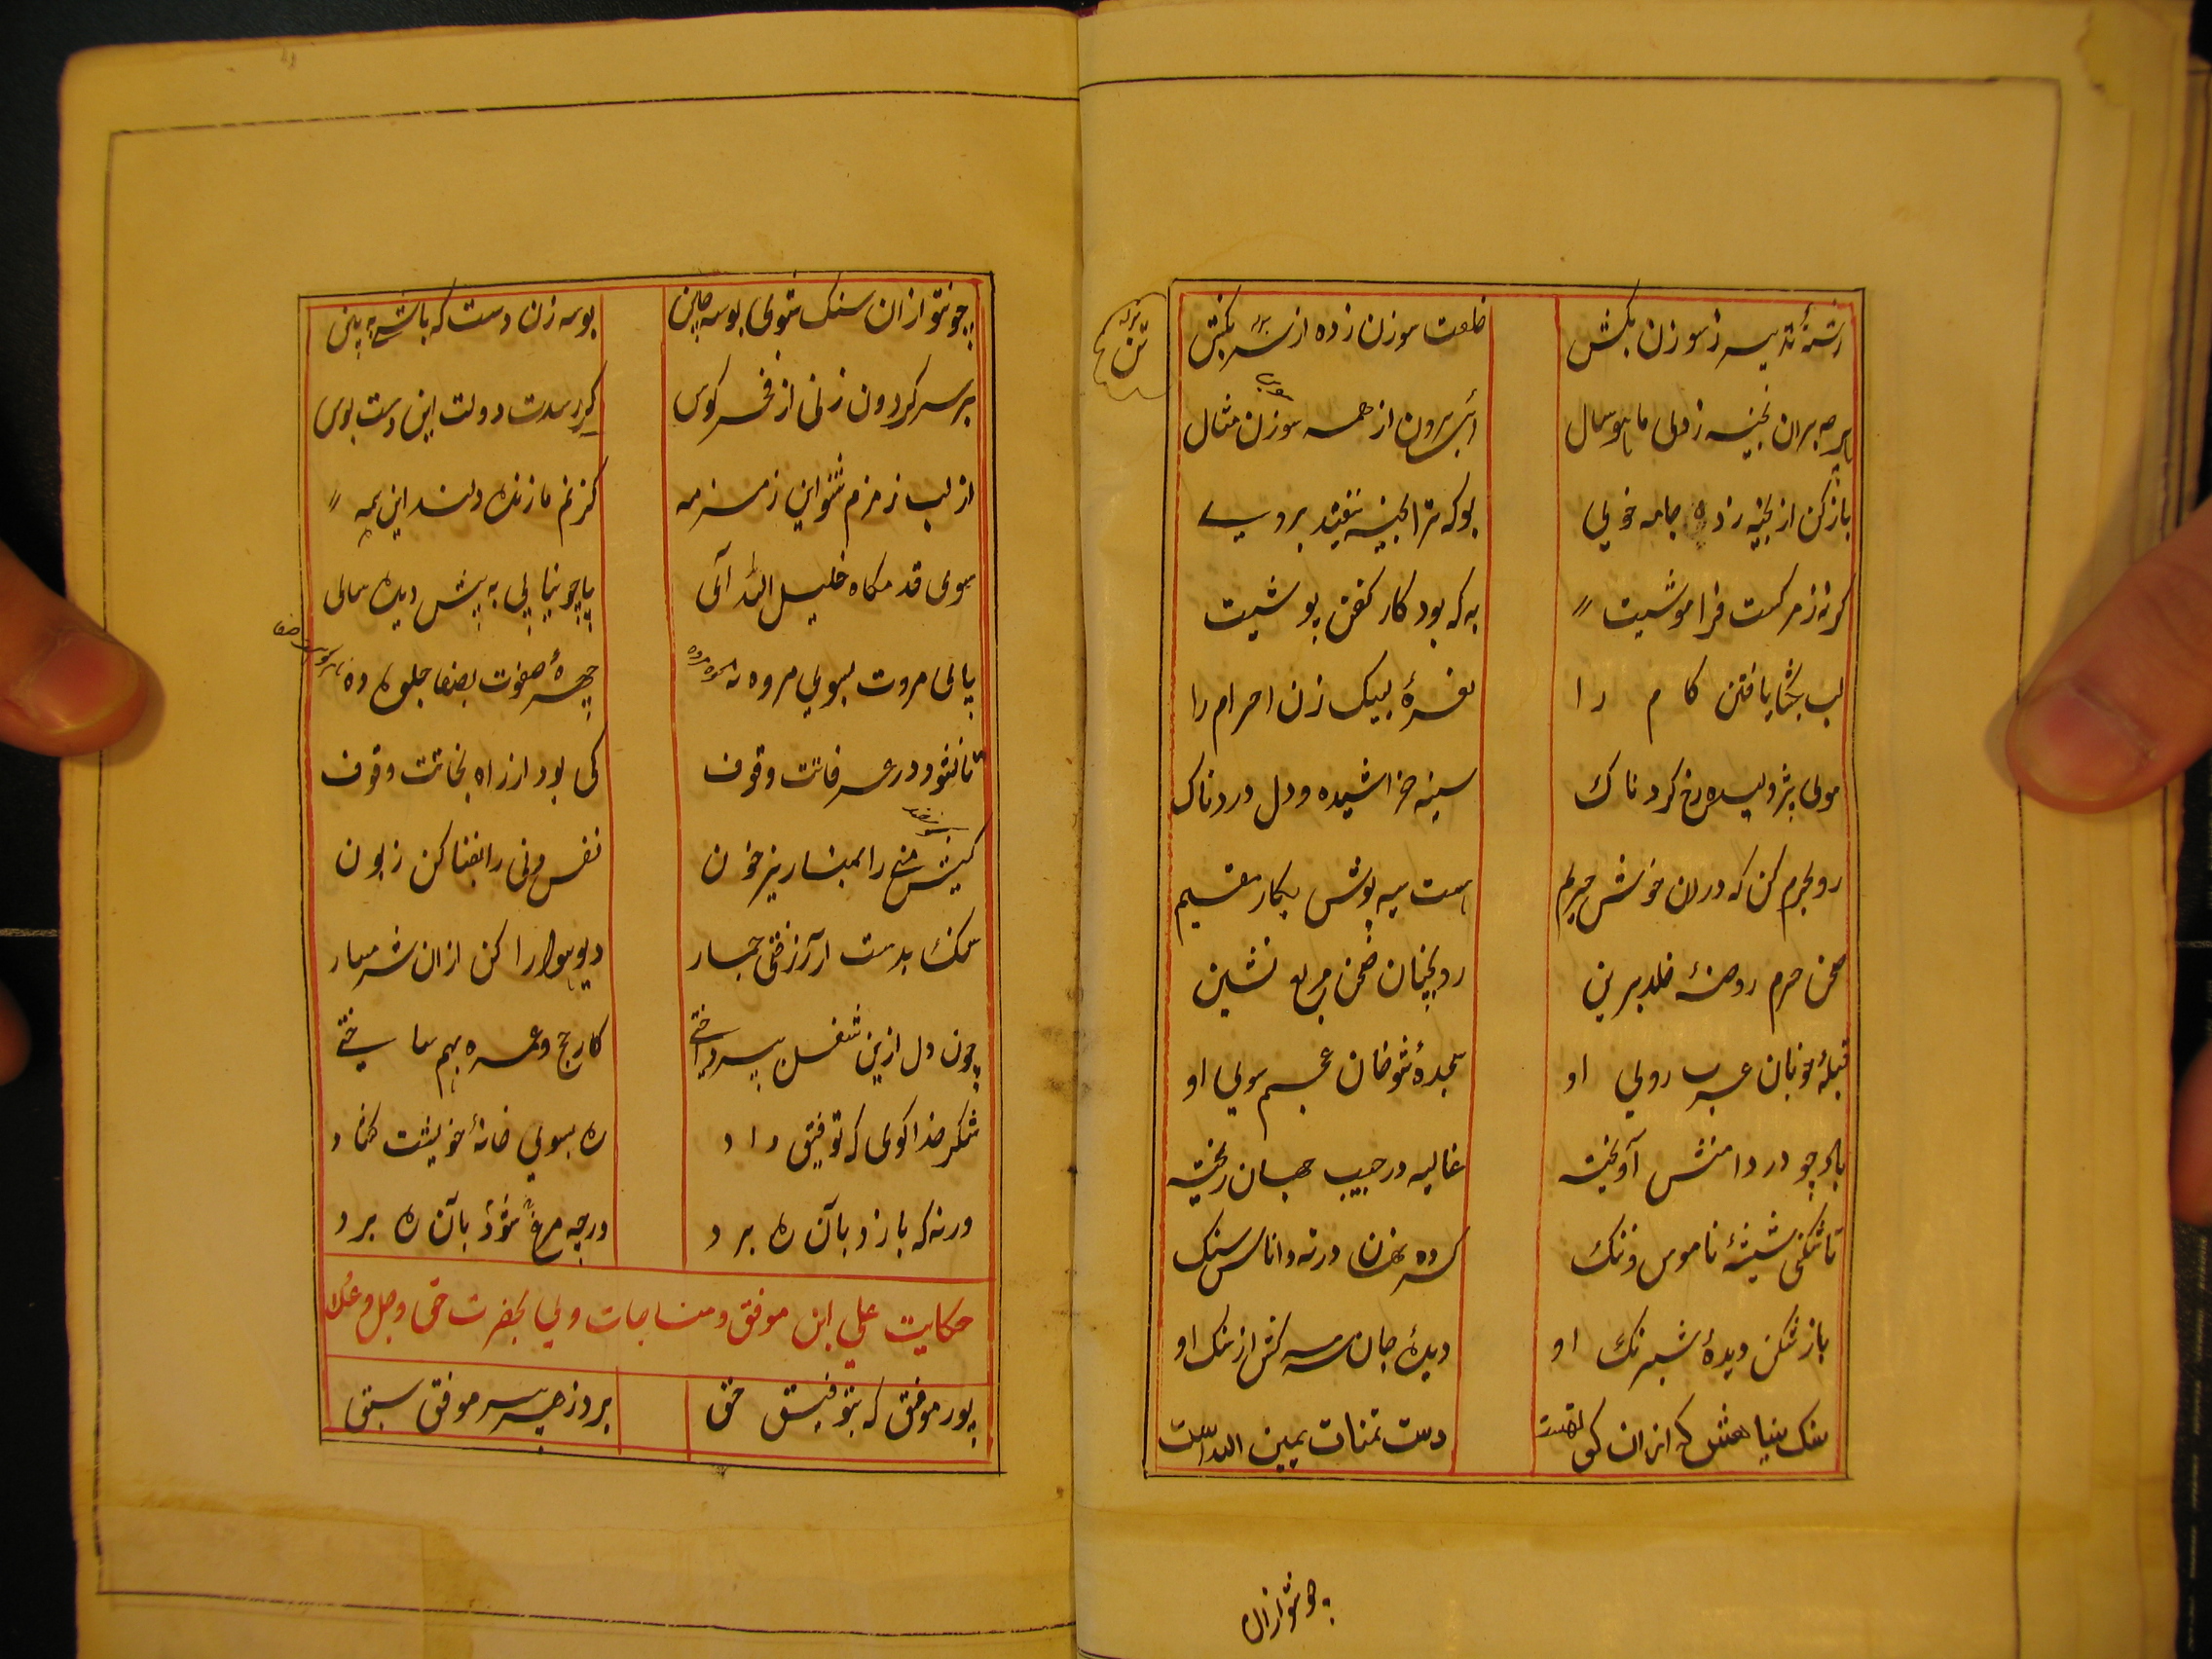 رشتهٔ تدبیر ز سوزن بکش
خلعت سوزن زده از سر بکش
هر چه بران بخیه زدی ماه و سال
آی برون از همه سوزن مثال
باز کن از بخیه زده جامه خوی
بو که ترا بخیه نیفتد بروی
گر نه ز مرکست فراموشیت
به که بود کار کفن پوشیت
لب بکشا یافتن کام را
نعرهٔ لبیک زن احرام را
موی پژولیده رخ کردناک
سینه خراشیده و دل دردناک
رو بحرم کن که دران خوش حریم
هست سیه پوش نکار مقیم
صحن حرم روضهٔ خلد برین
او بچنان صحن مربع نشین
قبلهٔ خوبان عرب روی او
سجدهٔ شوخان عجم سوی او
باد چو در دامنش آویخته
غالیه در جیب جهان ریخته
تا شکنی شیشهٔ ناموس و ننک
کرده نهان در ته دامان سنک
باز شکن دیدهٔ شبرنک او
دیدهٔ جان سرمه کش از سنک او
سنک سیاهش که ازان کوتهست
دست تمنات یمین الله است
چو شوازان
چون تو ازان سنک شوی بوسه چین
بوسه زن دست که باشی ببین
بر سر کردون زنی از فخر کوس
کر رسدت دولت این دست بوس
از لب زمزم شنو این زمزمه
کز نم ما زنده دلند این همه
سوی قدمکاه خلیل الله آی
پا چو نیابی به پیش دیده سای
پای مروت بسوی مروه نه
چهرهٔ صفوت بصفا جلوه ده
تا نشود در عرفاتت وقوف
کی بود از راه نجاتت وقوف
کیش منی را بمنا ریز خون
نفس دنی را بفنا کن زبون
سنک بدست آر ز رمی جمار
دیو هوا را کن ازان سنکسار
چون دل ازین شغل بپرداختی
کار حج و عمره بهم ساختی
شکر خدا کوی که توفیق داد
ره بسوی خانهٔ خویشت کشاد
ورنه که یارد که بآن ره برد
ور چه مرغی شود بآن ره برد
حکایت علی ابن موفق و مناجات وی بحضرت حق وجل وعلا
پور موفق که بتوفیق حق
برد ز هر پیر موفق سبق